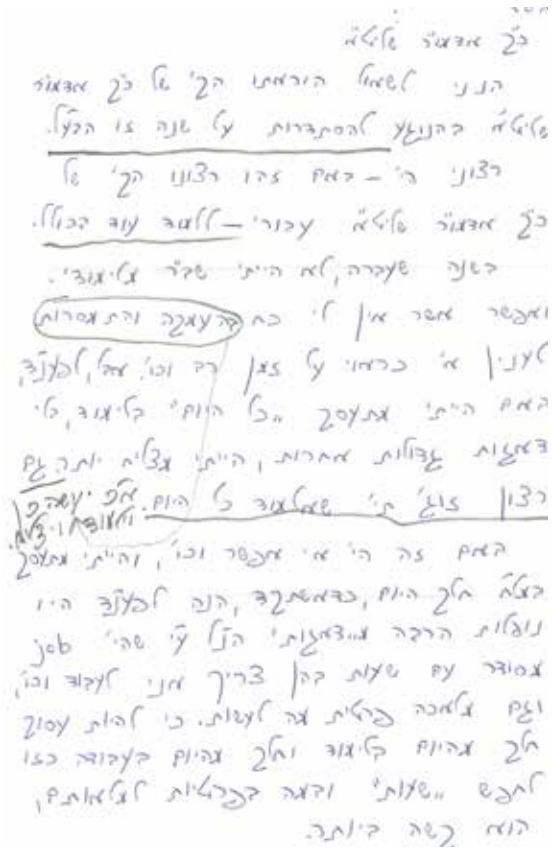 כ"ק אדמו"ר שליט"א
הנני לשאול הוראתו הק' של כ"ק אדמו"ר
שליט"א בהנוגע להסתדרות על שנה זו הבע"ל.
רצוני הי' – באם זהו רצונו הק' של
כ"ק אדמו"ר שליט"א עבורי – ללמוד עוד בכולל.
בשנה שעברה, לא הייתי שב"ר מלימודי.
ואפשר אשר אין לי כח בהעמקה והתמסרות
לענין א' כראוי על זמן רב וכו'. אבל, לפענ"ד,
באם הייתי מתעסק "כל היום" בלימוד, בלי
דאגות גדולות אחרות, הייתי מצליח יותר. גם
רצון זוג' תי' שאלמוד כל היום.
א"כ יעשה כן
ולמעודו ויצליח.
באם זה הי' אי אפשר וכו', והייתי מתעסק
בעל"מ חלק היום, כדאשתקד, הנה לפענ"ד היו
נופלות הרבה מ"דאגותי" הנ"ל ע"י שהי' job
מסודר עם שעות בהן צריך אני לעבוד וכו',
וגם מלאכה פרטית מה לעשות. כי להיות עסוק
חלק מהיום בלימוד וחלק מהיום בעבודה כזו
לחפש "שעות" ובמה בפרטיות למלאותם,
הוא קשה ביותר.